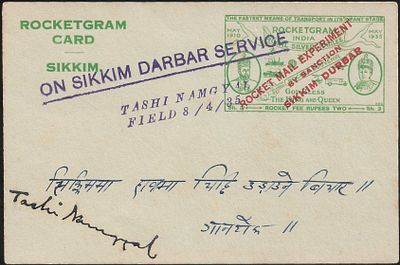 ROCKETGRAM
CARD
SIKKIM
ON SIKKIM DARBAR SERVICE
TASHI NAMGYAL
FIELD 8/4/35
THE FASTEST MEANS OF TRANSPORT IN ITS INFANT STAGE.
MAY
1910
ROCKETGRAM
INDIA
MAY
1935
ROCKET MAIL EXPERIMENT
BY SANCTION
SIKKIM DURBAR
GOD BLESS
THE KING AND QUEEN
ROCKET FEE RUPEES TWO
Sh. 3
Sh. 3
सिक्किममा हावामा चिट्ठि उड़ाउने विचार ॥
गान्तोक ॥
Tashi Namgyal